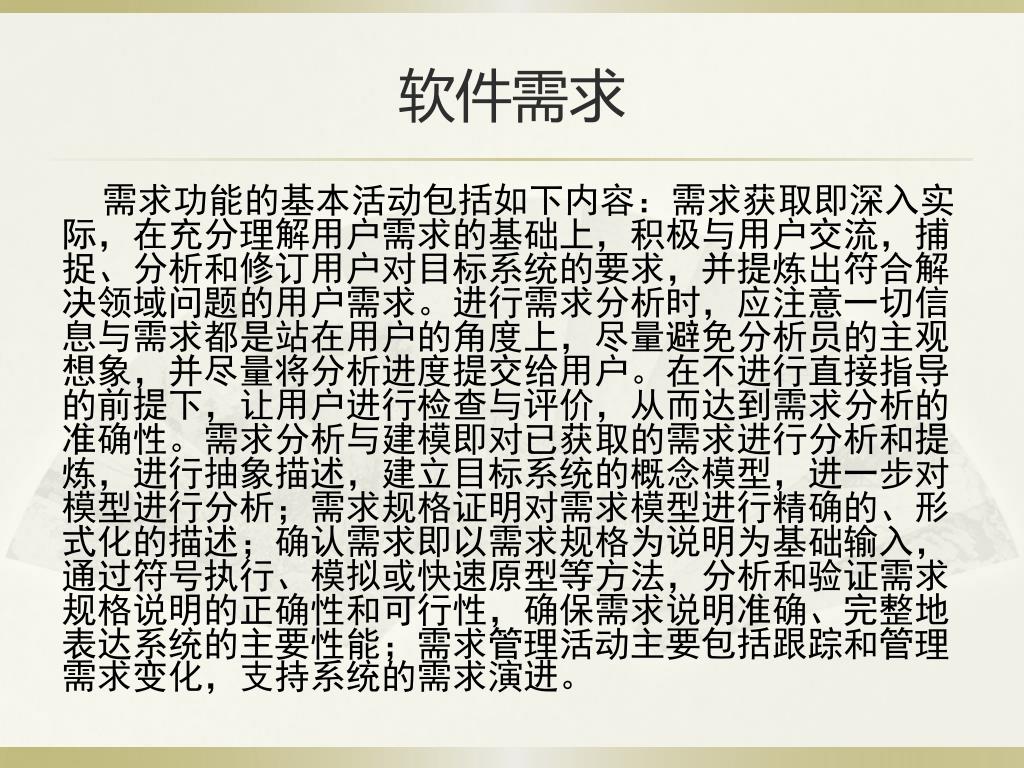 软件需求
需求功能的基本活动包括如下内容：需求获取即深入实
际，在充分理解用户需求的基础上，积极与用户交流，捕
捉、分析和修订用户对目标系统的要求，并提炼出符合解
决领域问题的用户需求。进行需求分析时，应注意一切信
息与需求都是站在用户的角度上，尽量避免分析员的主观
想象，并尽量将分析进度提交给用户。在不进行直接指导
的前提下，让用户进行检查与评价，从而达到需求分析的
准确性。需求分析与建模即对已获取的需求进行分析和提
炼，进行抽象描述，建立目标系统的概念模型，进一步对
模型进行分析；需求规格证明对需求模型进行精确的、形
式化的描述；确认需求即以需求规格为说明为基础输入，
通过符号执行、模拟或快速原型等方法，分析和验证需求
规格说明的正确性和可行性，确保需求说明准确、完整地
表达系统的主要性能；需求管理活动主要包括跟踪和管理
需求变化，支持系统的需求演进。